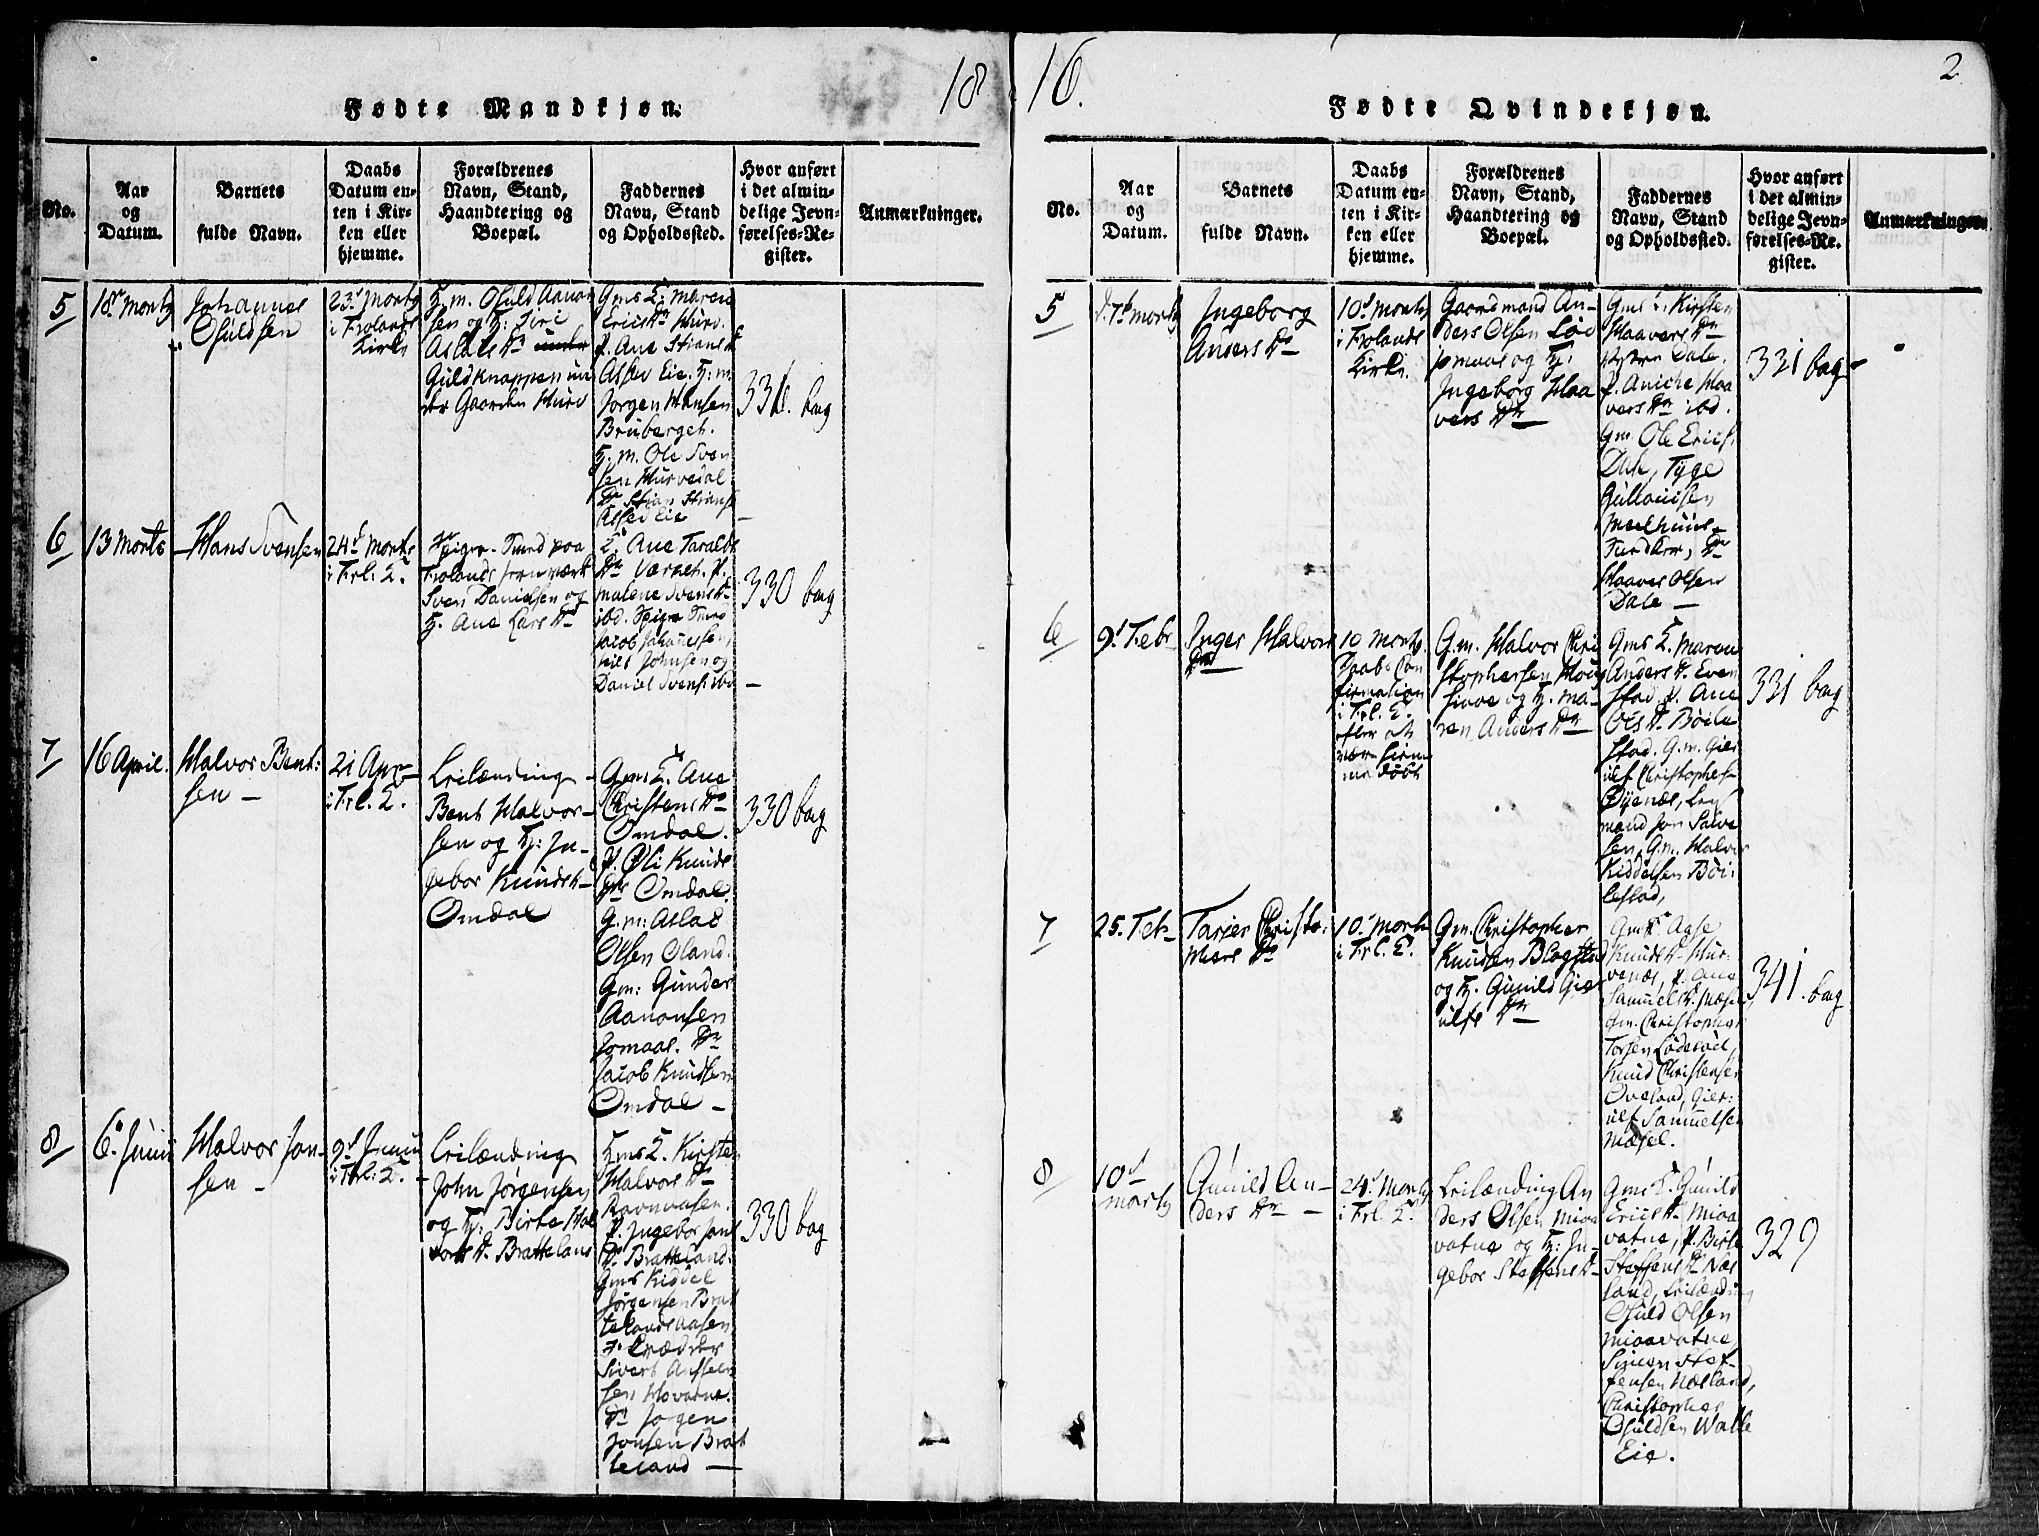 18
16.
2
Fødte Mandkjøn.
No.
Aar
og
Datum.
Barnets
fulde Navn.
Daabs
Datum en-
ten i Kir-
ken eller
hjemme.
Forældrenes
Navn, Stand,
Haandtering og
Boepæl.
Faddernes
Navn, Stand
og Opholdssted.
Hvor anført
i det almin-
delige Jevn-
førelses-Re-
gister.
Anmærkninger.
5
18de Martz
Johannes
Osuldsen
23d Martz
i Frolands
Kirke
H. m. Osuld Aanon
sen og H:
Aslaks Dr
Guldknappen un
der Gaarden Hurv
Gms K: Maren
Ericks Dr Hurv.
P. Ane Stians Dr
Asdev Eie. H: m:
Jørgen Hansen
Bruberget.
H. m. Ole Sven
sen Hurvedal
Dr Stian Stians
Eie
330. bag
6
13 Marts
Hans Svensen
24d Marts
i Frl: K.
Spiger-Smed paa
Frolands Jernværk
Sven Danielsen og
H. Ane Lars Dr
K. Ane Taralds
Dr Værket. P.
Malene Svens Dr
ibd. Spiger Smed
Jacob Johannessen,
Niels Johnsen og
Daniel Svens: ibd
330 bag
7
16 April.
Halvor Bent:
sen
21 Apr
i Frl. K.
Leilænding
Bent Halvor-
sen og H: In-
gebor Knuds Dr
Omdal
Gms K. Ane
Christens Dr
Omdal.
P. Oli Knuds
Dr Omdal.
G. m: Aslak
Olsen Oland.
Gm: Gunder
Aanonsen
Jomaas. Dr
Jacob Knudsen
Omdal
330 bag
8
6. Juni
Halvor Jon-
sen
9d Juni
i Frl: K.
Leilænding
John Jørgensen
og H: Birte Hal
vors Dr Bratteland
Hms K. Kirsten
Halvors Dr
Ravnaasen.
P. Ingebor Jons
Dr Bratteland.
Gms Kiddel
Jørgensen Brat
telandsaasen
Sivert
sen Hovatne.
Dr Jørgen
Jonsen Brat
teland
330 bag
Fødte Qvindekjøn.
No.
Aar
og
Datum.
Barnets
fulde Navn.
Daabs
Datum en-
ten i Kir-
ken eller
hjemme.
Forældrenes
Navn, Stand,
Haandtering og
Boepæl.
Faddernes
Navn, Stand
og Opholdssted.
Hvor anført
i det almin-
delige Jevn-
førelses-Re-
gister.
Anmærkninger.
5
d. 7d Martz
Ingeborg
Anders Dr
10d Martz
i Frolands
Kirke.
Gaardmand An-
ders Olsen Løv
jomaas og H:
Ingeborg Haa
vers Dr
Gms K: Kirsten
Haavers Dr
Dale.
P. Aniche Haa
vers Dr ibd.
Gm. Ole Erichs.
Dale, Tyge
Gullovsen
Dr
Haaver Olsen
Dale
331 bag
6
9d Febr
Inger Halvors
Dr
10 Martz
Daabs Con
firmation
i Frl. K.
efter at
være hiem
me døbt
G. m. Halvor Chri
stophersen
og H. Ma-
ren Anders Dr
Gms K. Maren
Anders Dr. Even
stad P. Ane
Ols Dr. Bøile
stad. G. m. Gier
ulf Christophers
Øynes, Leys
mand Jon Salve
sen, G. m. Halvor
Kiddelsen Bøi-
lestad,
331 bag
7
25. Feb
Tarjer Christo-
phers Dr
10d Marts
i Frl. K.
Gm. Christopher
Knudsen Blagstad
og H. Gunild Gier
ulfs Dr
Gms K. Aase
Knuds Dr Hur-
venes, P. Ane
Samuels Dr. Mæsel
Gm. Christopher
Torsen Lødesøel,
Knud Christensen
Oveland, Gier-
ulf Samuelsen
Mæsel.
341. bag
8
10d
Martz
Gunild An-
ders Dr
24d Martz
i Frl. K.
Leilænding An
ders Olsen Mioa
vatne og H: In-
gebor Steffens Dr
Gms K. Gunild
Erics Dr Mioa
vatne, P. Birte
Steffens Dr Næs
land, Leilænding
Osuld Olsen
Mioavatne,
Simon Stef-
fensen Næsland,
Christopher
Osuldsen Walle
Eie.
329